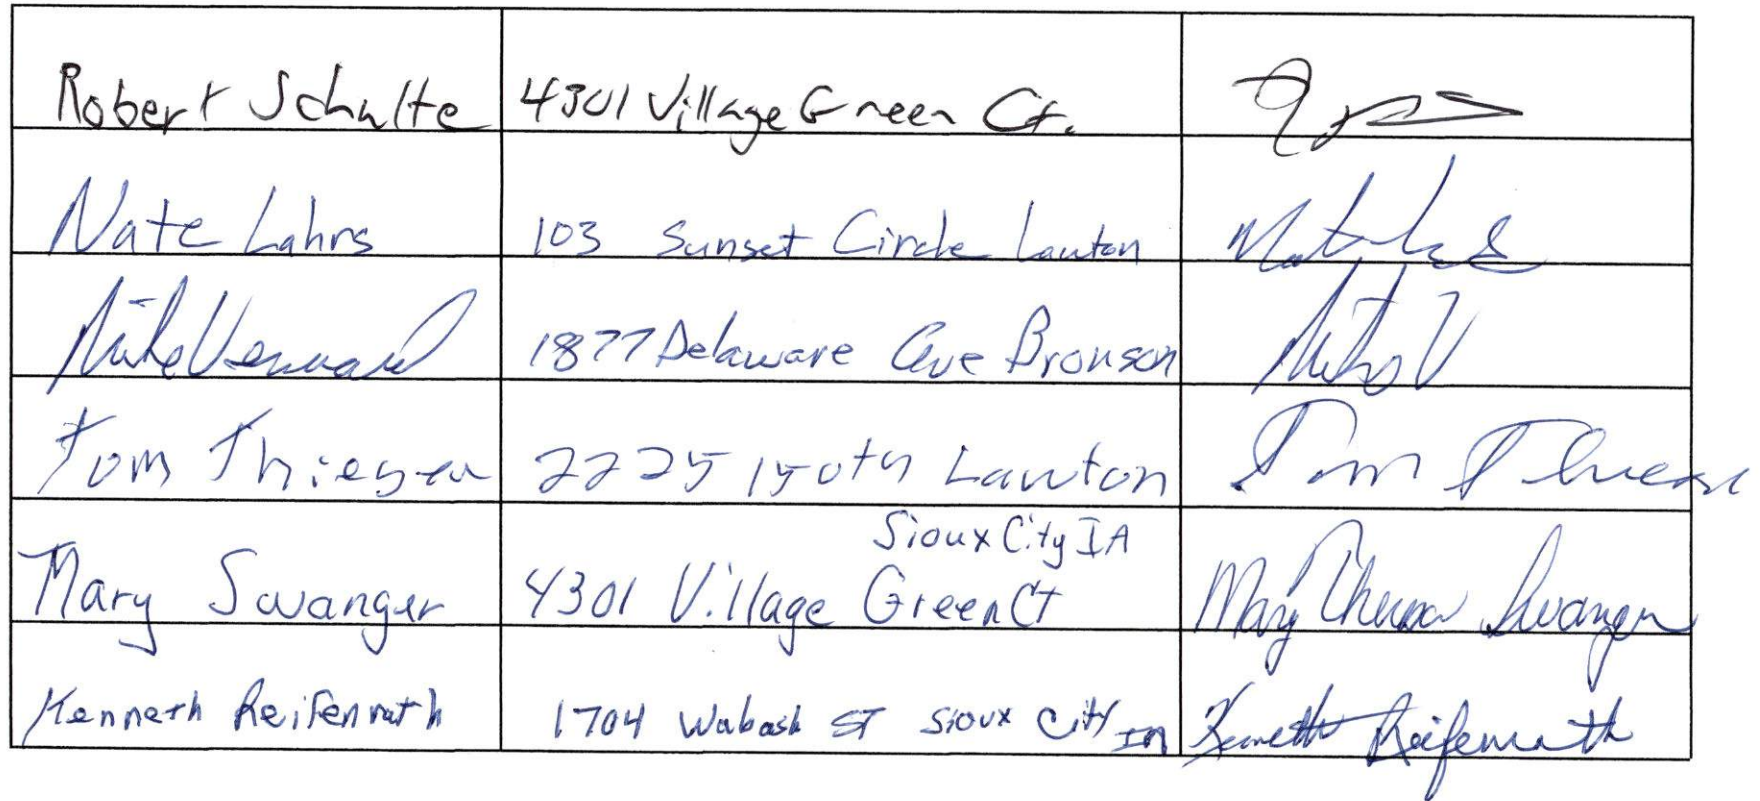 Robert Schulte 4301 Village Green Ct.
Nate Lahrs 103 Sunset Circle Lawton
Mike 1877 Delaware Ave Bronson Mike V
Tom 2225 150th Lawton Tom
Sioux City IA
Mary Swanger 4301 Village Green Ct Mary Swanger
Kenneth Reifenrath 1704 Wabash ST Sioux City IA Kenneth Reifenrath